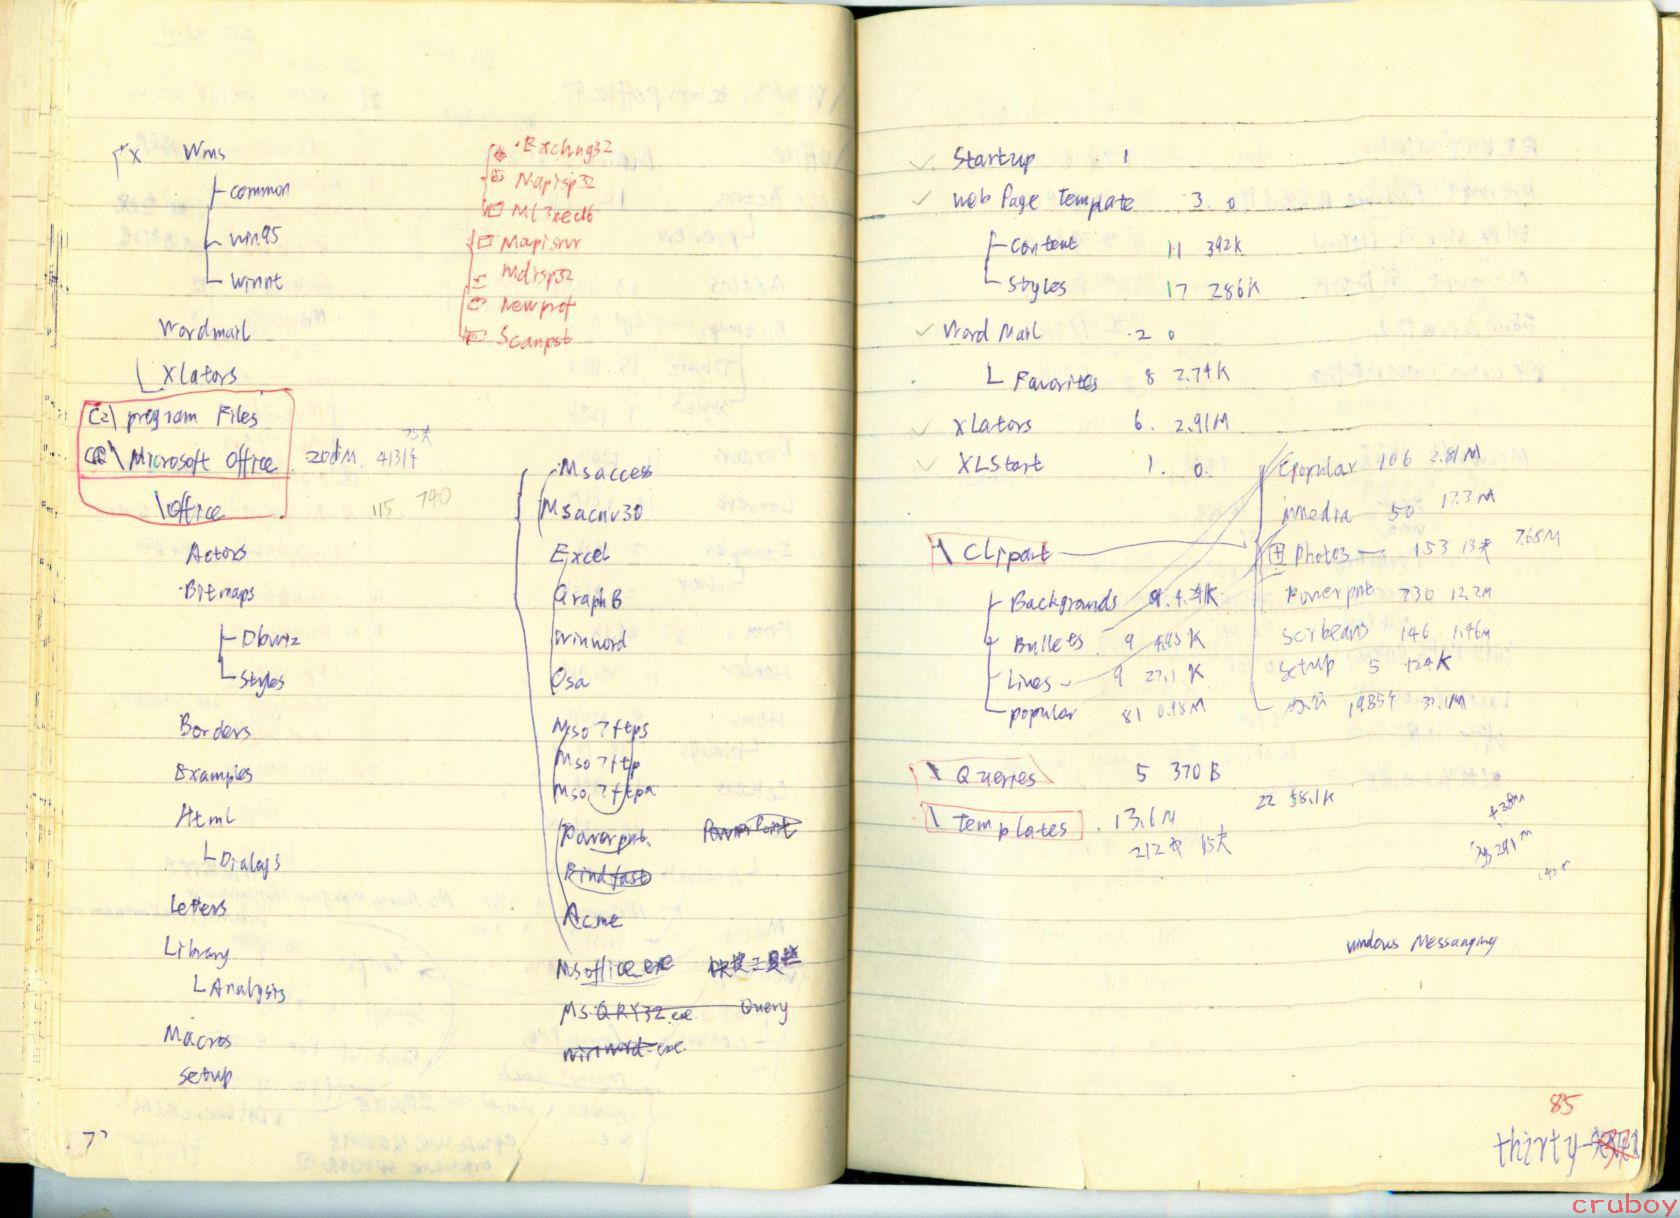 x Wms
common
win95
winnt
Wordmail
Xlators
C:\ program Files
\Microsoft Office 200M 413个
75大
\office 115 790
Actors
Bitmaps
Dbwiz
Styles
Borders
Examples
Html
Dialogs
Letters
Library
Analysis
Macros
setup
7
Exchng32
Mapisp32
Ml3xec16
Mapisrvr
Mdisp32
Newprof
Scanpst
Msaccess
Msacnv30
Excel
Graph8
winword
Osa
Mso7ftps
Mso7ftp
Mso7ftpa
Powerpnt. PowerPoint
Findfast
Acme
Msoffice.exe 快捷工具栏
MsQRY32.exe Query
winword.exe
Startup 1
Web Page Template 3. 0
Content 11 392K
Styles 17 286K
Word Mail 2 0
Favorites 8 2.74K
Xlators 6. 2.91M
XLStart 1. 0.
\ Clipart
Backgrounds 9. 4.4K
Bullets 9 4.45K
Lines 9 27.1K
popular 81 0.98M
Cpopular 106 2.81M
mmedia 50 17.3M
Photos 153 13大 7.65M
Powerpnt 730 12.2M
Scrbeans 146 1.46M
Setup 5 124K
\ Queries 5 370B
22 58.1K
\ Templates 13.6M
212 15大
windows Messanging
85
thirty-
cruboy